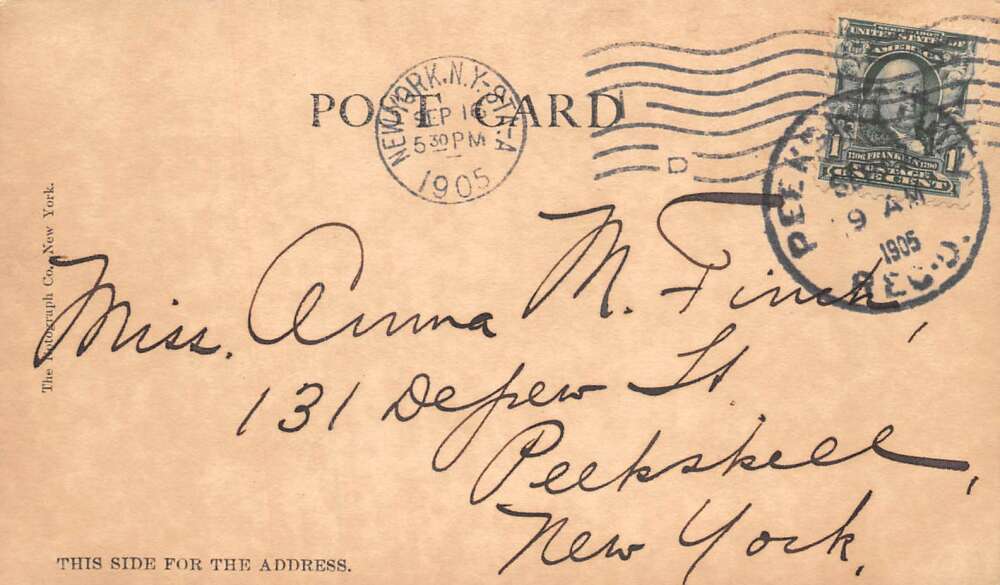 POST CARD
NEW YORK, N.Y.-STA-A
SEP
5 30 PM
1905
D
UNITED STATES OF
AMERICA
1
1706 FRANKLIN 1790
1
POSTAGE
ONE CENT
9 AM
1905
REC'D.
The Rotograph Co., New York.
Miss. Anna M. Finch,
131 Depew St
Peekskill,
New York,
THIS SIDE FOR THE ADDRESS.